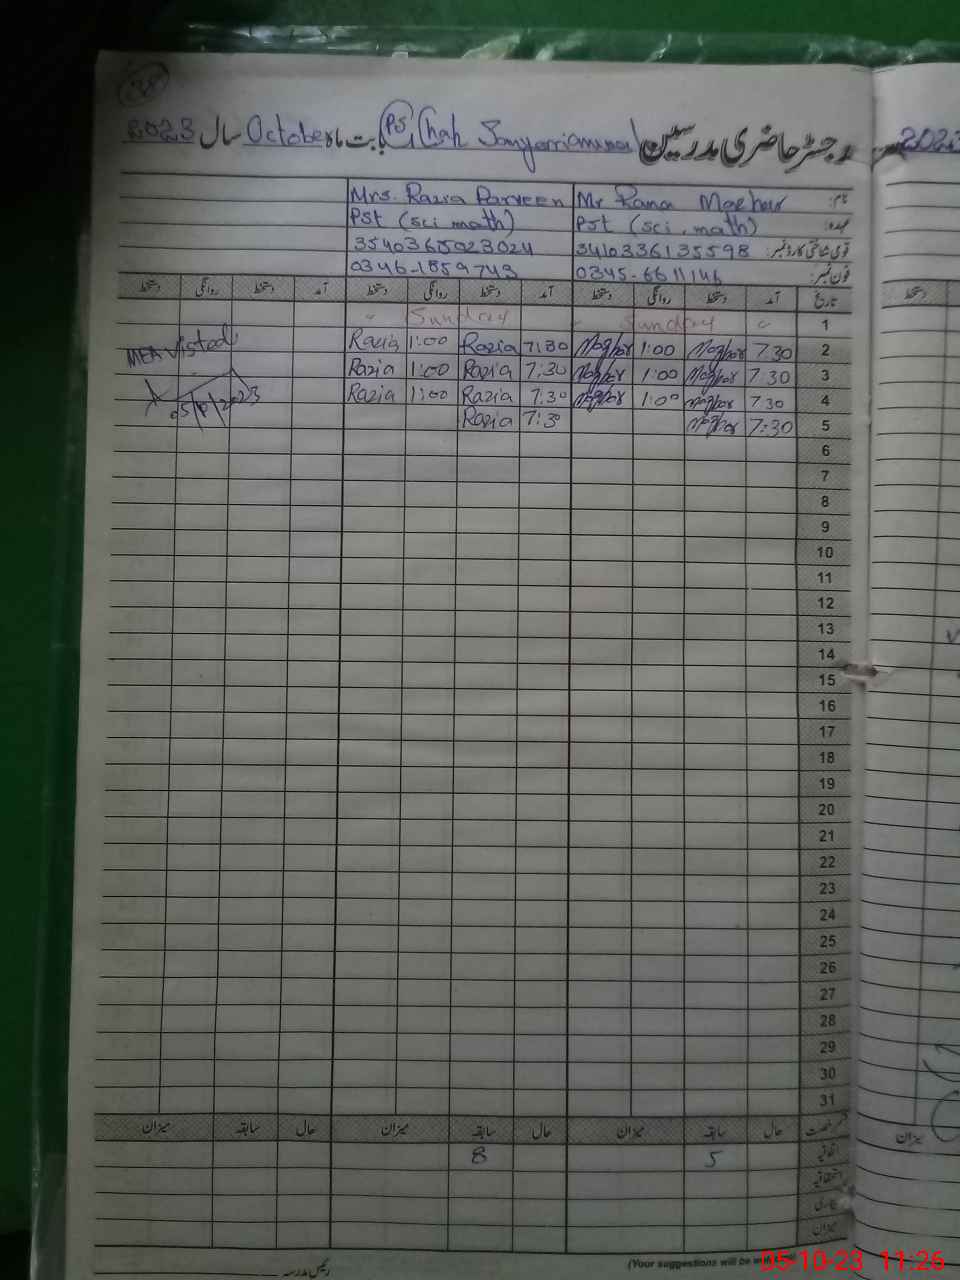 38
رجسٹر حاضری مدرسین PS Chah بابت ماہ October سال 2023
2023
نام: Mr Rana Mazhar Mrs. Razia Parveen
عہدہ: Pst (sci, math) Pst (sci math)
قومی شناختی کارڈ نمبر: 3410336135598 3540365023024
فون نمبر: 0345-6611146 0346-1859743
تاریخ آمد دستخط روانگی دستخط آمد دستخط روانگی دستخط آمد دستخط روانگی دستخط
دستخط
1 Sunday Sunday
2 7.30 Mazhar 1:00 Mazhar 7:30 Razia 1:00 Razia
MEA Visted
3 7:30 Mazhar 1:00 Mazhar 7:30 Razia 1:00 Razia
4 7.30 Mazhar 1:00 Mazhar 7:30 Razia 1:00 Razia
05/10/2023
5 7:30 Mazhar 7:30 Razia
6
7
8
9
10
11
12
13
14
15
16
17
18
19
20
21
22
23
24
25
26
27
28
29
30
31
رخصت حال سابقہ میزان حال سابقہ میزان حال سابقہ میزان
میزان
اتفاقیہ 5 8
استحقاقیہ
بیماری
میزان
رئیس مدرسہ
(Your suggestions will be
05-10-23 11:26